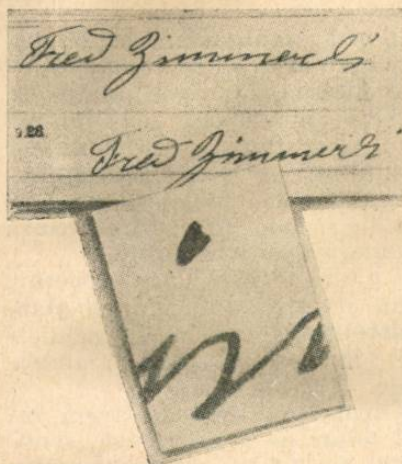 Fred Zimmerli
9.28
Fred Zimmerli